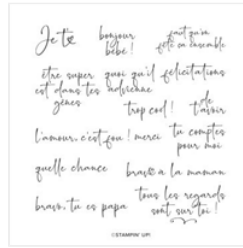 Je t
bonjour
bébé !
faut qu'on
fête ça ensemble
être super
est dans tes
gènes
quoi qu'il
advienne
félicitations
trop cool !
de
t'avoir
l'amour, c'est fou !
merci
tu comptes
pour moi
quelle chance
bravo à la maman
bravo, tu es papa
tous les regards
sont sur toi !
©STAMPIN' UP!